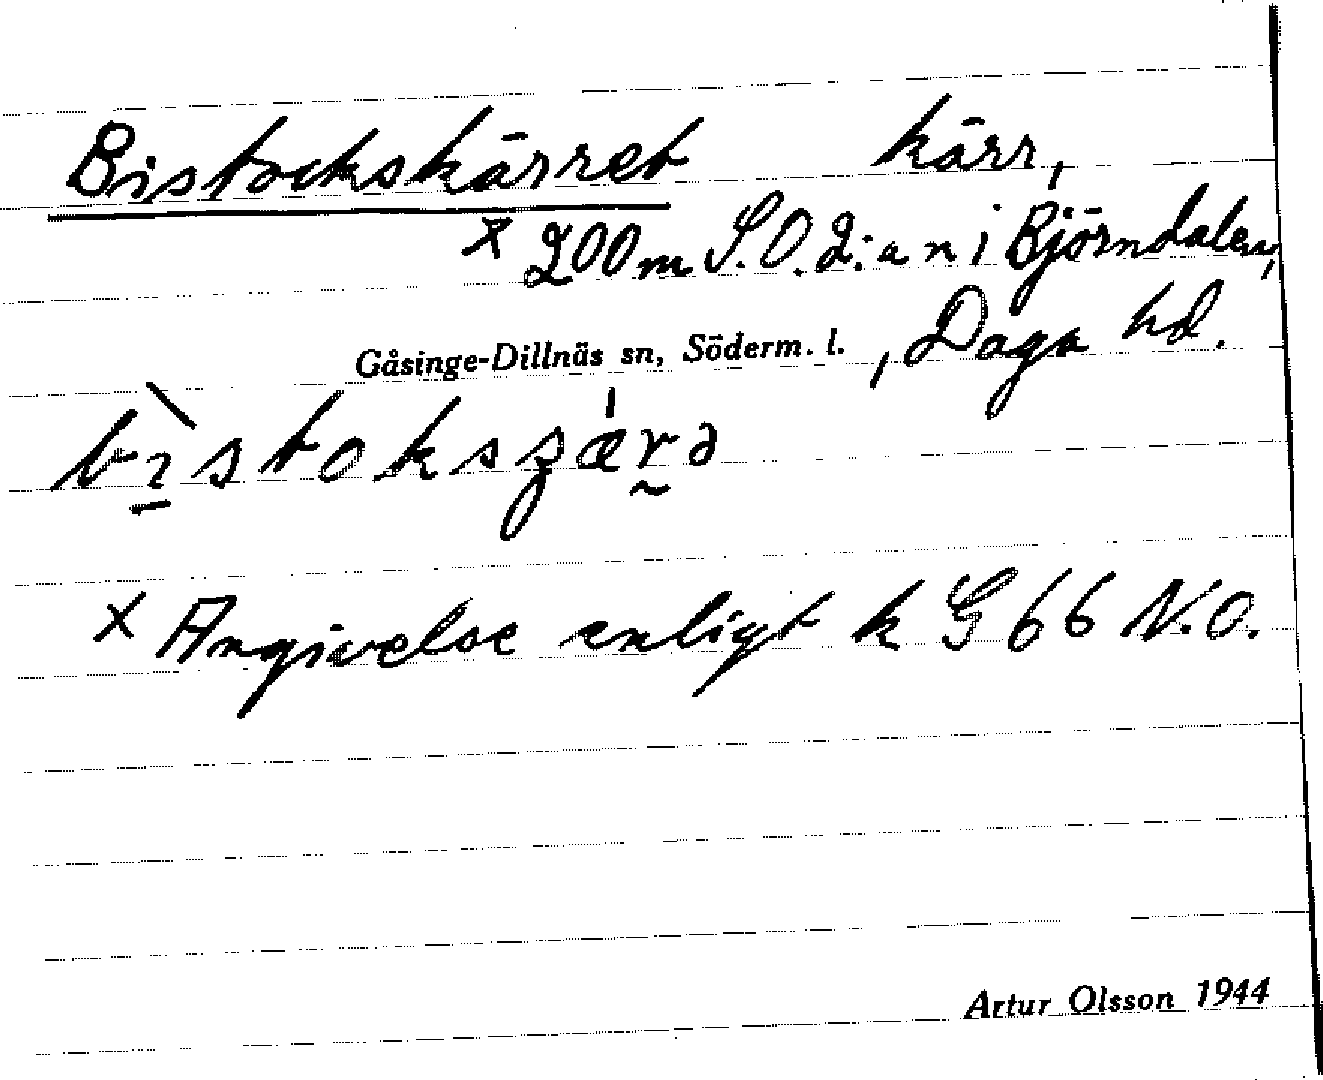 Bistockskärret kärr,
x 200 m S.O. 2:a n i Björndalen,
Gåsinge-Dillnäs sn, Söderm. l. , Daga hd.
x Angivelse enligt k G 66 N.O.
Artur Olsson 1944